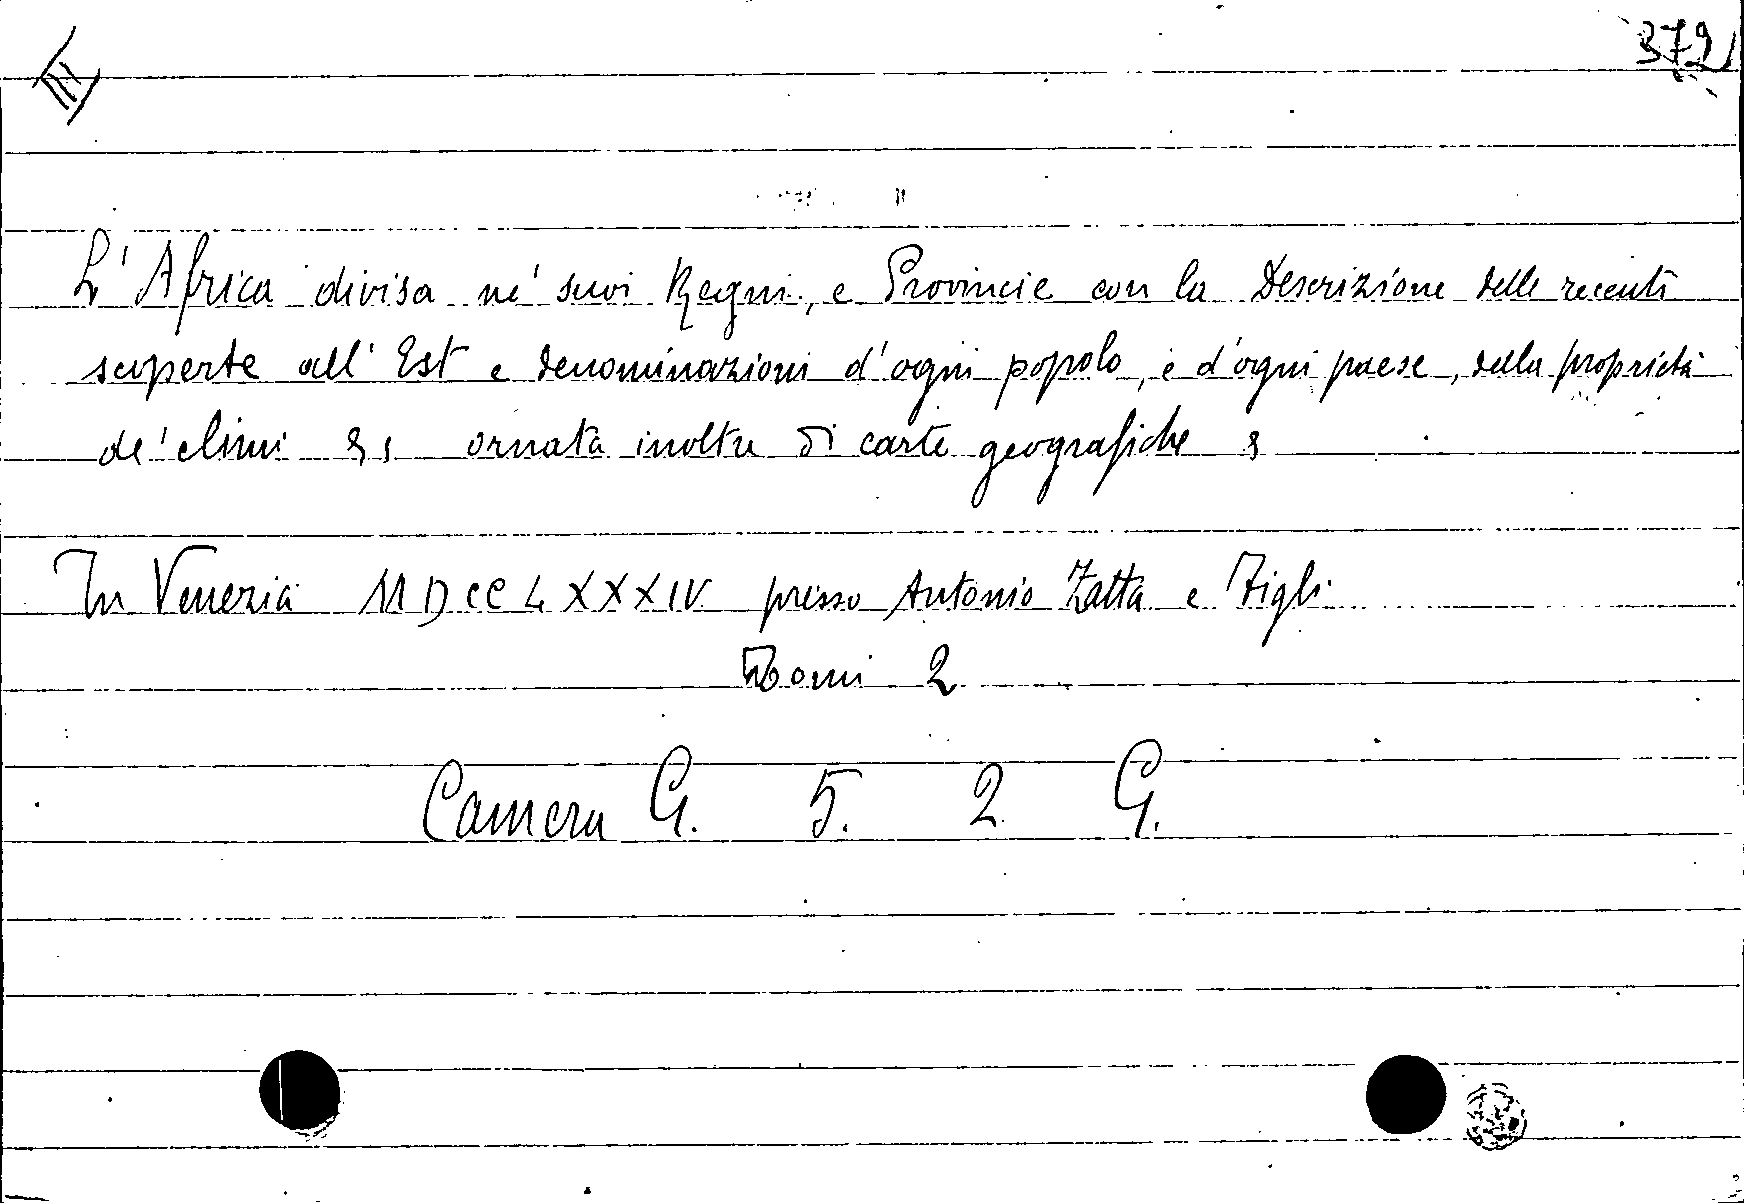 IV
372
L' Africa divisa ne' suoi Regni, e Provincie con la Descrizione delle recenti
scoperte all' Est e denominazioni d'ogni popolo, e d'ogni paese, della proprietà
de' climi &, ornata inoltre di carte geografiche &
In Venezia MDCCLXXXIV presso Antonio Zatta e Figli
Tomi 2
Camera G. 5. 2 G.